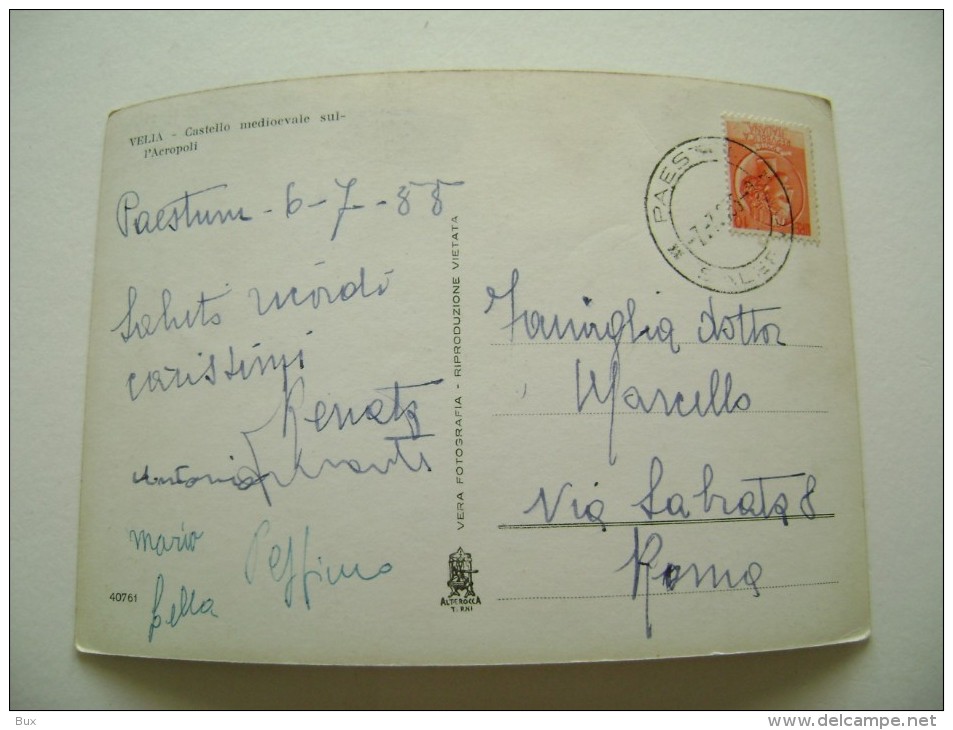 VELIA - Castello medioevale sul-
l'Acropoli
Paestum - 6-7-88
Saluti ricordi
carissimi
Renata
Antonia
mario Peppino
Lella
40761
VERA FOTOGRAFIA - RIPRODUZIONE VIETATA
ALTEROCCA
TERNI
PAESTUM
SALERNO
Famiglia Dottor
Marcello
Via Sabrata 8
Roma
Bux
www.delcampe.net